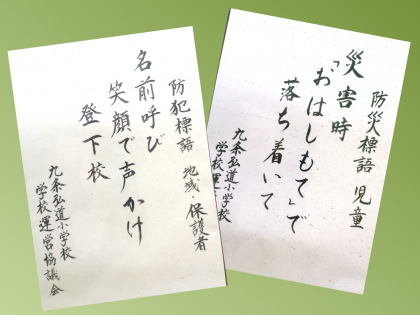 防犯標語 地域・保護者
名前呼び
笑顔で声かけ
登下校
九条弘道小学校
学校運営協議会
防災標語 児童
災害時
「おはしもて」で
落ち着いて
九条弘道小学校
学校運